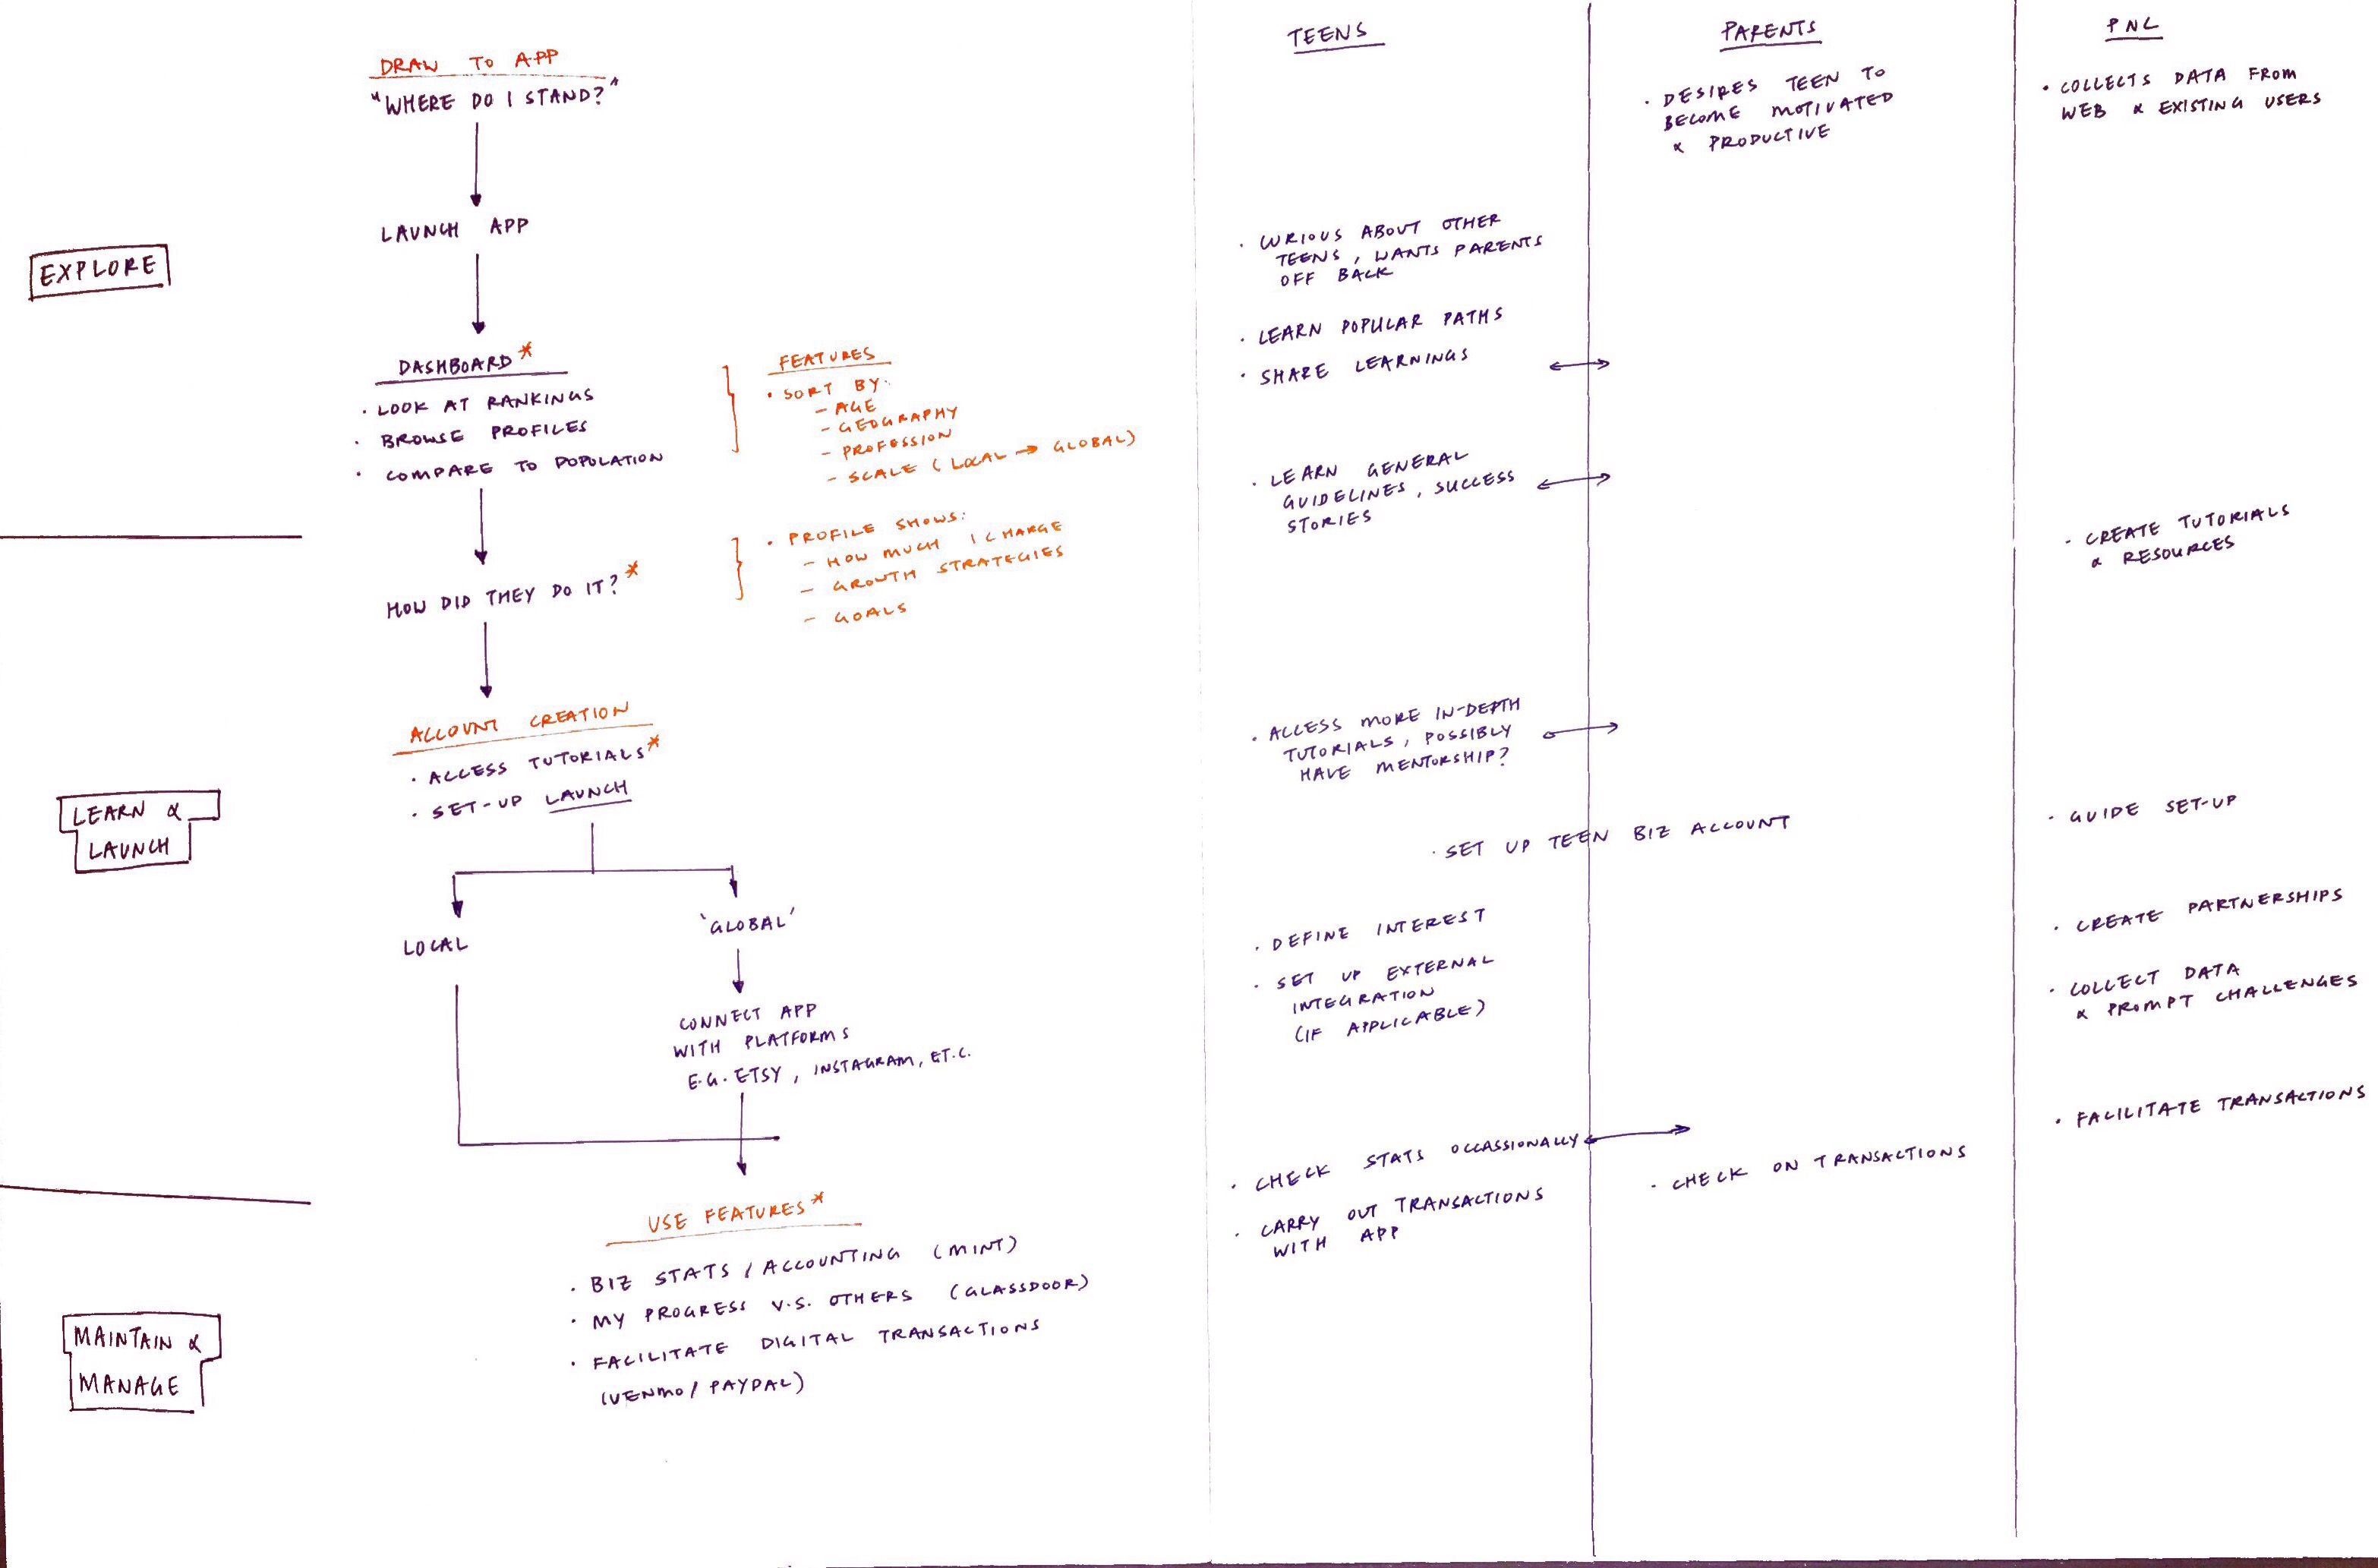 DRAW TO APP
"WHERE DO I STAND?"
LAUNCH APP
EXPLORE
DASHBOARD*
· LOOK AT RANKINGS
· BROWSE PROFILES
· COMPARE TO POPULATION
FEATURES
· SORT BY:
- AGE
- GEOGRAPHY
- PROFESSION
- SCALE (LOCAL → GLOBAL)
HOW DID THEY DO IT?*
· PROFILE SHOWS:
- HOW MUCH I CHARGE
- GROWTH STRATEGIES
- GOALS
ACCOUNT CREATION
· ACCESS TUTORIALS*
· SET-UP LAUNCH
LEARN &
LAUNCH
LOCAL
'GLOBAL'
CONNECT APP
WITH PLATFORMS
E.G. ETSY, INSTAGRAM, ET.C.
USE FEATURES*
· BIZ STATS / ACCOUNTING (MINT)
· MY PROGRESS V.S. OTHERS (GLASSDOOR)
· FACILITATE DIGITAL TRANSACTIONS
(VENMO / PAYPAL)
MAINTAIN &
MANAGE
TEENS
· CURIOUS ABOUT OTHER
TEENS, WANTS PARENTS
OFF BACK
· LEARN POPULAR PATHS
· SHARE LEARNINGS
· LEARN GENERAL
GUIDELINES, SUCCESS
STORIES
· ACCESS MORE IN-DEPTH
TUTORIALS, POSSIBLY
HAVE MENTORSHIP?
· SET UP TEEN BIZ ACCOUNT
· DEFINE INTEREST
· SET UP EXTERNAL
INTEGRATION
(IF APPLICABLE)
· CHECK STATS OCCASSIONALLY
· CARRY OUT TRANSACTIONS
WITH APP
PARENTS
· DESIRES TEEN TO
BECOME MOTIVATED
& PRODUCTIVE
· CHECK ON TRANSACTIONS
PNC
· COLLECTS DATA FROM
WEB & EXISTING USERS
· CREATE TUTORIALS
& RESOURCES
· GUIDE SET-UP
· CREATE PARTNERSHIPS
· COLLECT DATA
& PROMPT CHALLENGES
· FACILITATE TRANSACTIONS